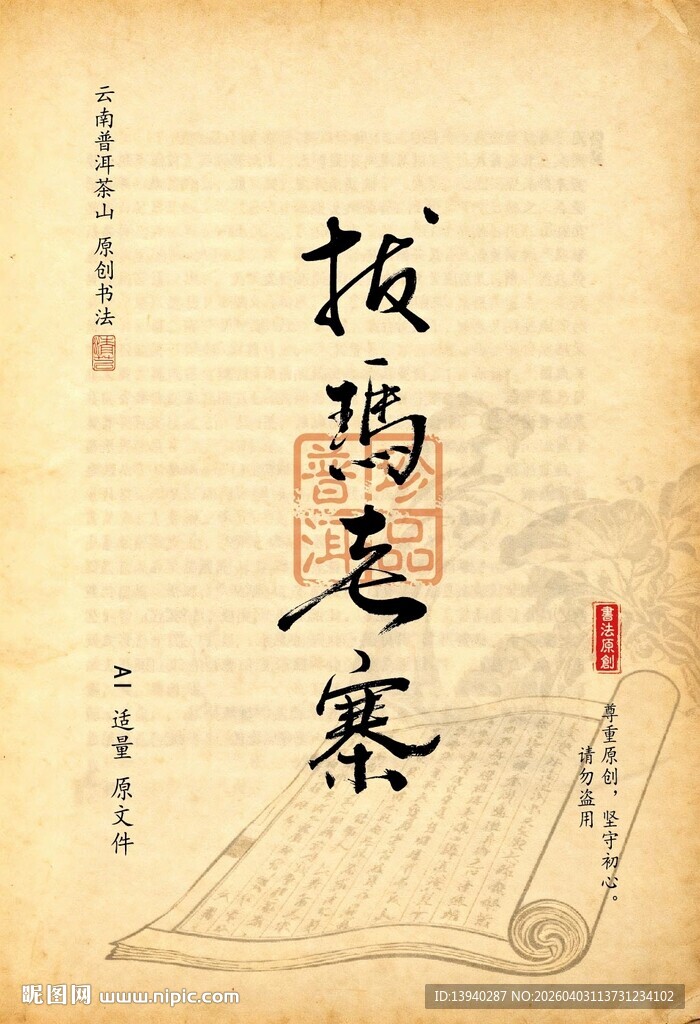 云南普洱茶山 原创书法
拔瑪老寨
普洱
珍品
書法原創
尊重原创，坚守初心。
请勿盗用
AI 适量 原文件
昵图网 www.nipic.com
ID:13940287 NO:20260403113731234102